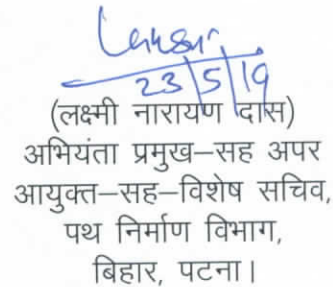 23/5/19
(लक्ष्मी नारायण दास)
अभियंता प्रमुख–सह अपर
आयुक्त–सह–विशेष सचिव,
पथ निर्माण विभाग,
बिहार, पटना।